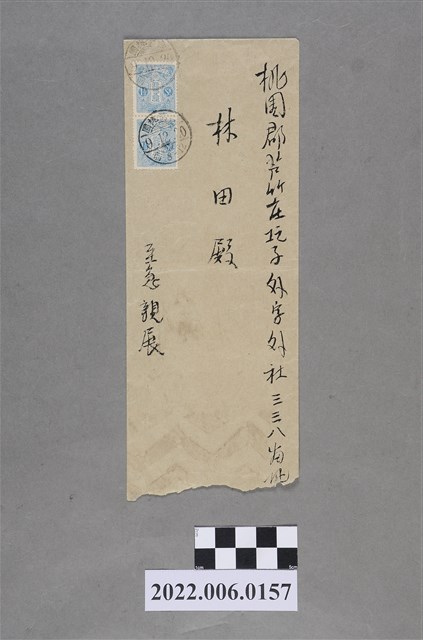 桃園郡芦竹庄坑子外字外社三三八番地
林田殿
至急親展
2022.006.0157